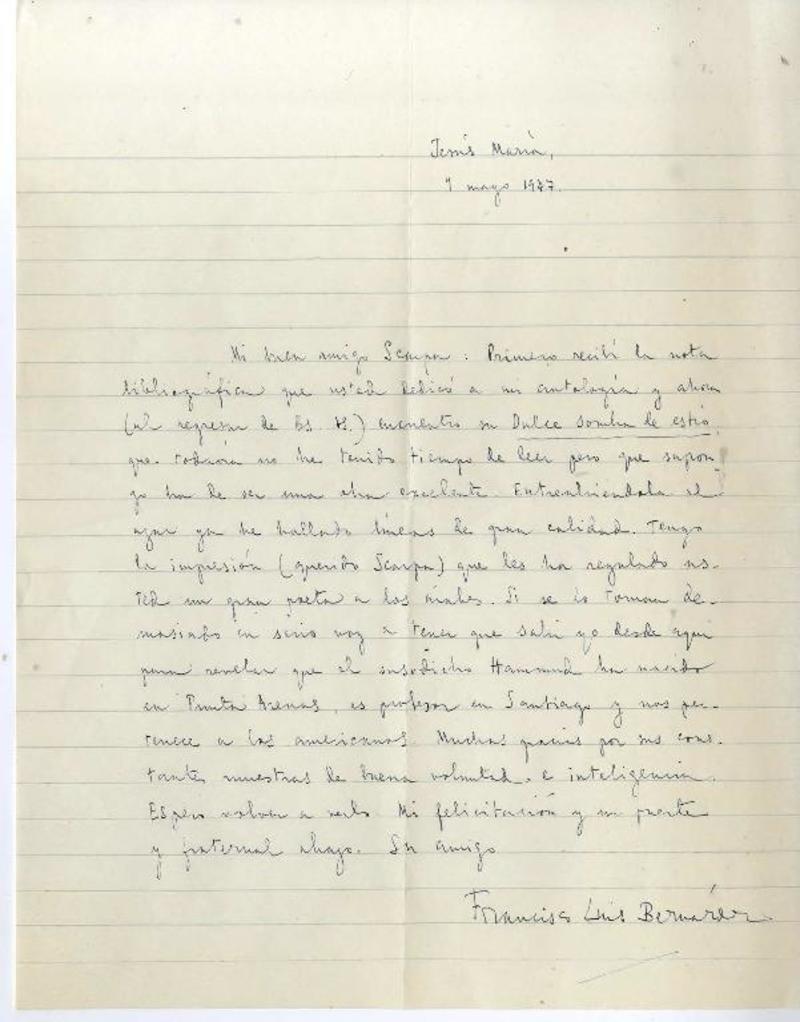 Jesús María,
1 mayo 1947.
Mi buen amigo Scarpa: Primero recibí la nota
bibliográfica que usted dedicó a mi antología y ahora
(al regresar de Bs. As.) encuentro su Dulce sombra de estío
que todavía no he tenido tiempo de leer pero que supon-
go ha de ser una obra excelente. Entreabriéndola al
azar ya he hallado líneas de gran calidad. Tengo
la impresión (querido Scarpa) que les ha regalado us-
ted un gran poeta a los árabes. Si se lo toman de-
masiado en serio voy a tener que salir yo desde aquí
para revelar que el susodicho Hammud ha nacido
en Punta Arenas, es profesor en Santiago y nos per-
tenece a los americanos. Muchas gracias por sus cons-
tantes muestras de buena voluntad e inteligencia.
Espero volver a verlo. Mi felicitación y un fuerte
y fraternal abrazo. Su amigo
Francisco Luis Bernárdez